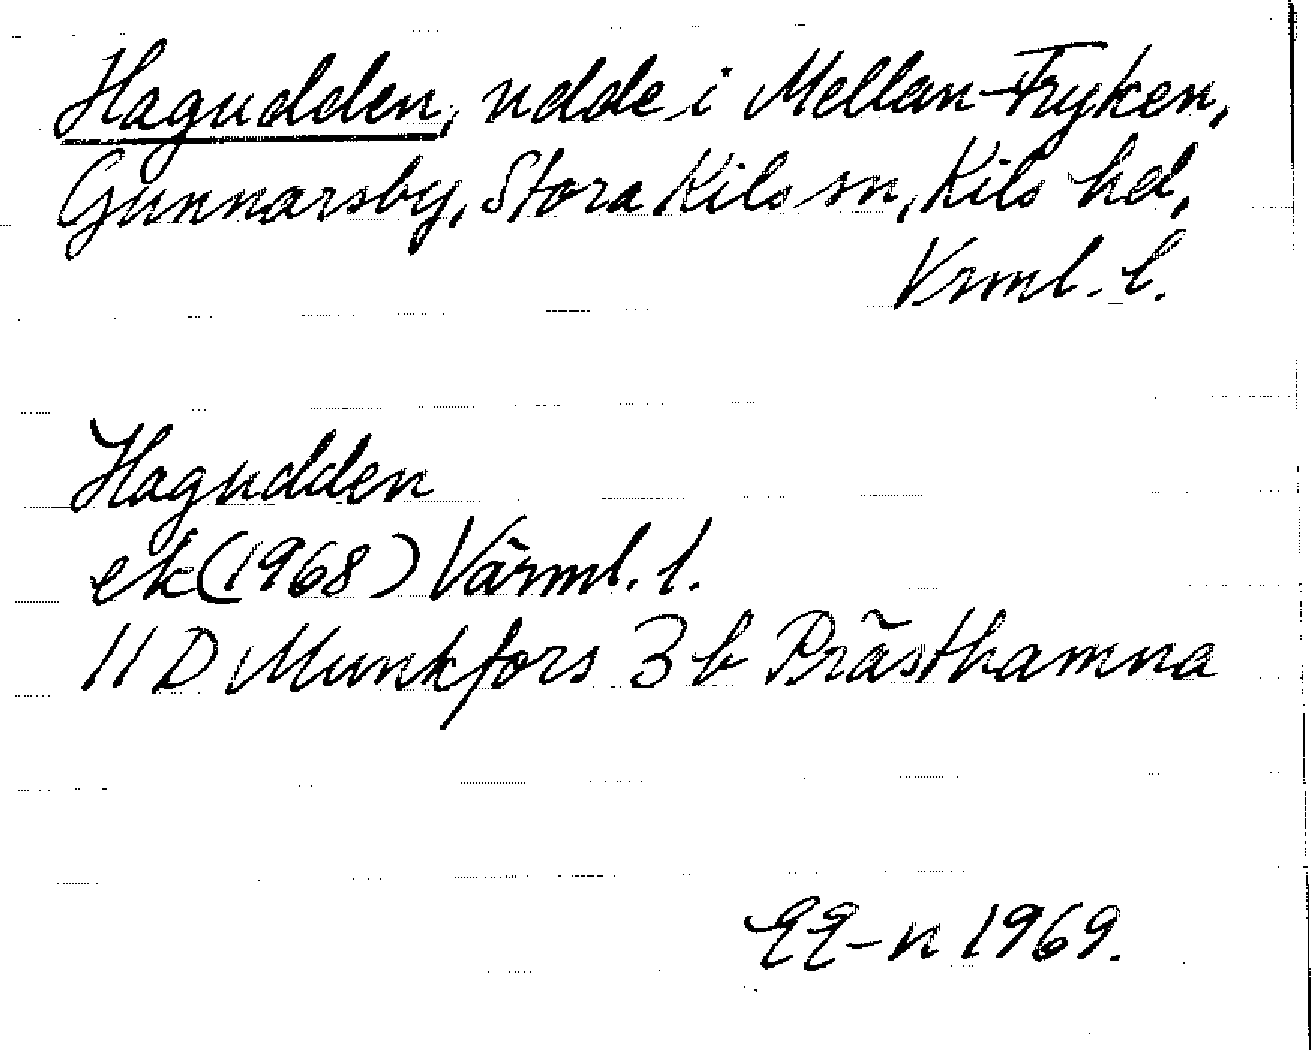 Hagudden, udde i Mellan-Fryken,
Gunnarsby, Stora Kils sn, Kils hd,
Vrml. l.
Hagudden
ek (1968) Värml. l.
11 D Munkfors 3 b Prästhamna
EE-n 1969.